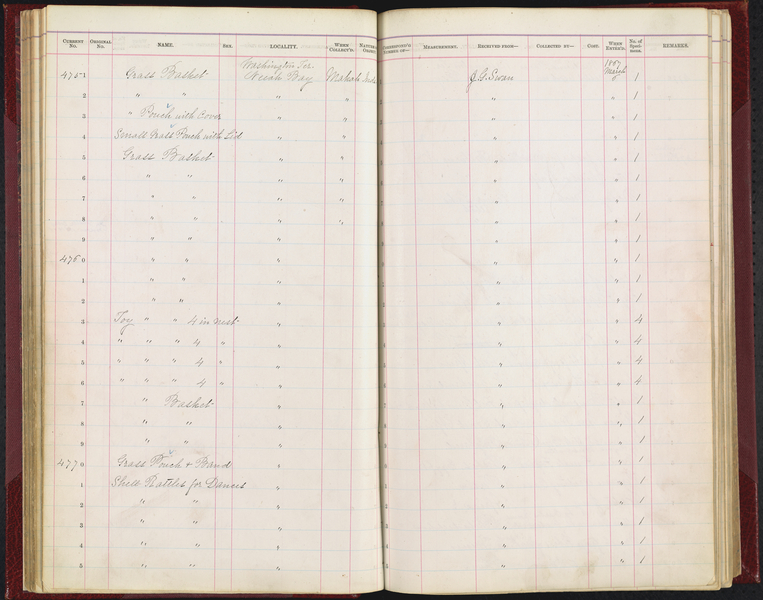 CURRENT No. ORIGINAL No. NAME. SEX. LOCALITY. WHEN COLLECT'D. NATURE OF OBJECT MEASUREMENT. RECEIVED FROM— COLLECTED BY— COST. WHEN ENTER'D. No. of Specimens. REMARKS.
Washington Ter. 1887
4751 Grass Basket Neeah Bay Makah Inds J. G. Swan March 1
2 " " " " " " 1
3 " Pouch with Cover " " " " 1
4 Small Grass Pouch with Lid " " " " 1
5 Grass Basket " " " " 1
6 " " " " " " 1
7 " " " " " " 1
8 " " " " " " 1
9 " " " " " 1
4760 " " " " " 1
1 " " " " " 1
2 " " " " " 1
3 Toy " " 4 in nest " " " 4
4 " " " 4 " " " " 4
5 " " " 4 " " " " 4
6 " " " 4 " " " " 4
7 " Basket " " " 1
8 " " " " " 1
9 " " " " " 1
4770 Grass Pouch + Band " " " 1
1 Shell Rattles for Dances " " " 1
2 " " " " " 1
3 " " " " " 1
4 " " " " " 1
5 " " " " " 1